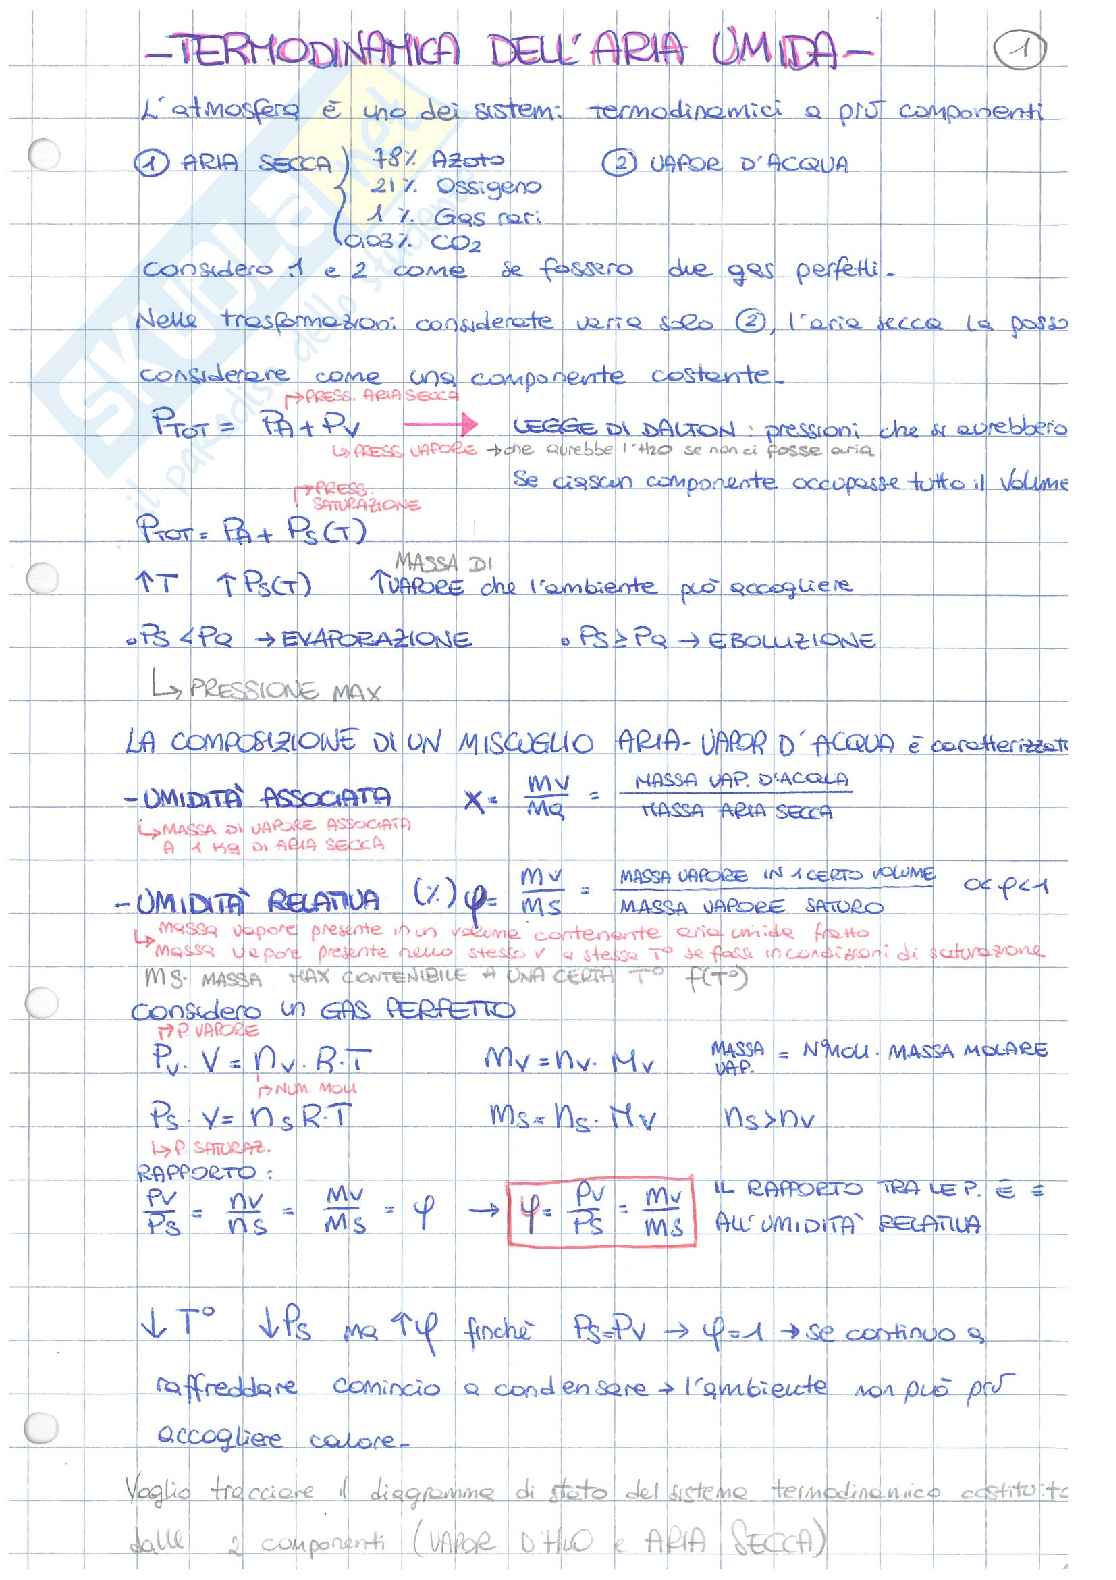 -TERMODINAMICA DELL'ARIA UMIDA- 1
L'atmosfera è uno dei sistemi termodinamici a più componenti
① ARIA SECCA 78% Azoto ② VAPOR D'ACQUA
21% Ossigeno
1% Gas rari
0,03% CO2
considero 1 e 2 come se fossero due gas perfetti.
Nelle trasformazioni considerate varia solo ②, l'aria secca la posso
considerare come una componente costante.
PRESS. ARIA SECCA
PTOT = PA + PV → LEGGE DI DALTON: pressioni che si avrebbero
PRESS. VAPORE → che avrebbe l'H2O se non ci fosse aria
se ciascun componente occupasse tutto il volume
PRESS. SATURAZIONE
PTOT = PA + PS(T)
MASSA DI
↑T ↑PS(T) ↑VAPORE che l'ambiente può accogliere
• PS < Pa → EVAPORAZIONE • PS ≥ Pa → EBOLLIZIONE
↳ PRESSIONE MAX
LA COMPOSIZIONE DI UN MISCUGLIO ARIA-VAPOR D'ACQUA è caratterizzat
- UMIDITÀ ASSOCIATA x = mv/ma = MASSA VAP. D'ACQUA / MASSA ARIA SECCA
↳ MASSA DI VAPORE ASSOCIATA
A 1 Kg DI ARIA SECCA
- UMIDITÀ RELATIVA (%) φ = mv/ms = MASSA VAPORE IN 1 CERTO VOLUME / MASSA VAPORE SATURO 0<φ<1
↳ massa vapore presente in un volume contenente aria umida fratto
massa vapore presente nello stesso V a stessa T° se fossi in condizioni di saturazione
MS. MASSA MAX CONTENIBILE A UNA CERTA T° f(T°)
considero un GAS PERFETTO
P. VAPORE
Pv · V = nv · R · T mv = nv · Mv MASSA VAP. = N°MOLI · MASSA MOLARE
NUM. MOLI
Ps · V = ns R · T ms = ns · Mv ns > nv
↳ P. SATURAZ.
RAPPORTO:
Pv/Ps = nv/ns = mv/ms = φ → φ = Pv/Ps = mv/ms IL RAPPORTO TRA LE P. È =
ALL'UMIDITÀ RELATIVA
↓T° ↓Ps ma ↑φ finchè Ps=Pv → φ=1 → se continuo a
raffreddare comincio a condensare → l'ambiente non può più
accogliere calore.
Voglio tracciare il diagramma di stato del sistema termodinamico costituito
dalle 2 componenti (VAPOR D'H2O e ARIA SECCA)
SKUOLA.net
il paradiso dello studente